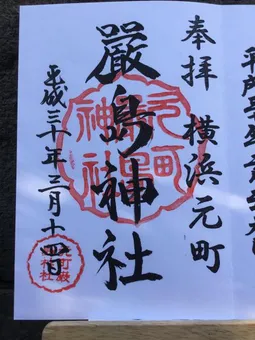 奉拝 横浜元町
嚴島神社
平成三十年三月十四日
元町
神社